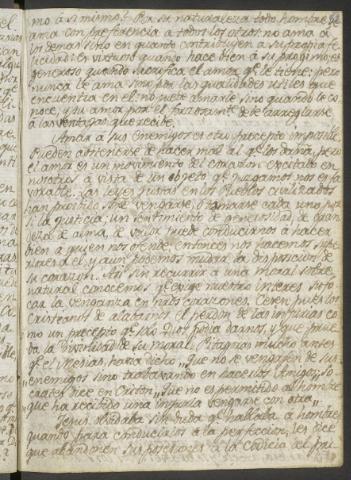 mo á si mismo? Por su naturaleza todo hombre se
ama con preferencia a todos los otros: no ama á
los demas sino en quanto contribuyen a su propia fe
licidad: es virtuoso quando hace bien a su progimo: es
generoso quando sacrifica el amor qe le tiene; pero
nunca le ama sino por las qualidades utiles que
encuentra en el: no puede amarle sino quando le co
noce, y su amor por el debe arreglarse
á las ventajas que recibe.
Amar á sus enemigos es otro precepto imposible.
Pueden abstenerse de hacer mal al qe los daña, pero
el amor es un movimiento del corazon excitado en
nosotros á vista de un objeto qe juzgamos nos es fa
vorable. Las leyes justas en los Pueblos civilizados
han prohibido vengarse, ó tomarse cada uno por
si la justicia; un sentimiento de generosidad, de gran
deza de alma, de valor puede conducirnos á hacer
bien a quien nos ofende: entonces nos hacemos supe
riores á el, y aun podemos mudar la disposicion de
su corazon. Asi sin recurrir á una moral sobre
natural conocemos qe exige nuestro interes sufo
car la venganza en nros corazones. Cesen pues los
Cristianos de alabarnos el perdon de las injurias co
mo un precepto qe solo Dios podia darnos, y que prue
ba la divinidad de su moral. Pitagoras mucho antes
qe el Mesias havia dicho „Que no se vengasen de sus
„enemigos sino trabajando en hacerlos Amigos; So
crates dice en Criton „Que no es permitido al hombre
„que ha recibido una injuria vengarse con otra„
Jesus olvidaba sin duda qe hablaba á hombres
quando para conducirlos á la perfeccion, les dice
que abandonen sus posesiones á la codicia del pri